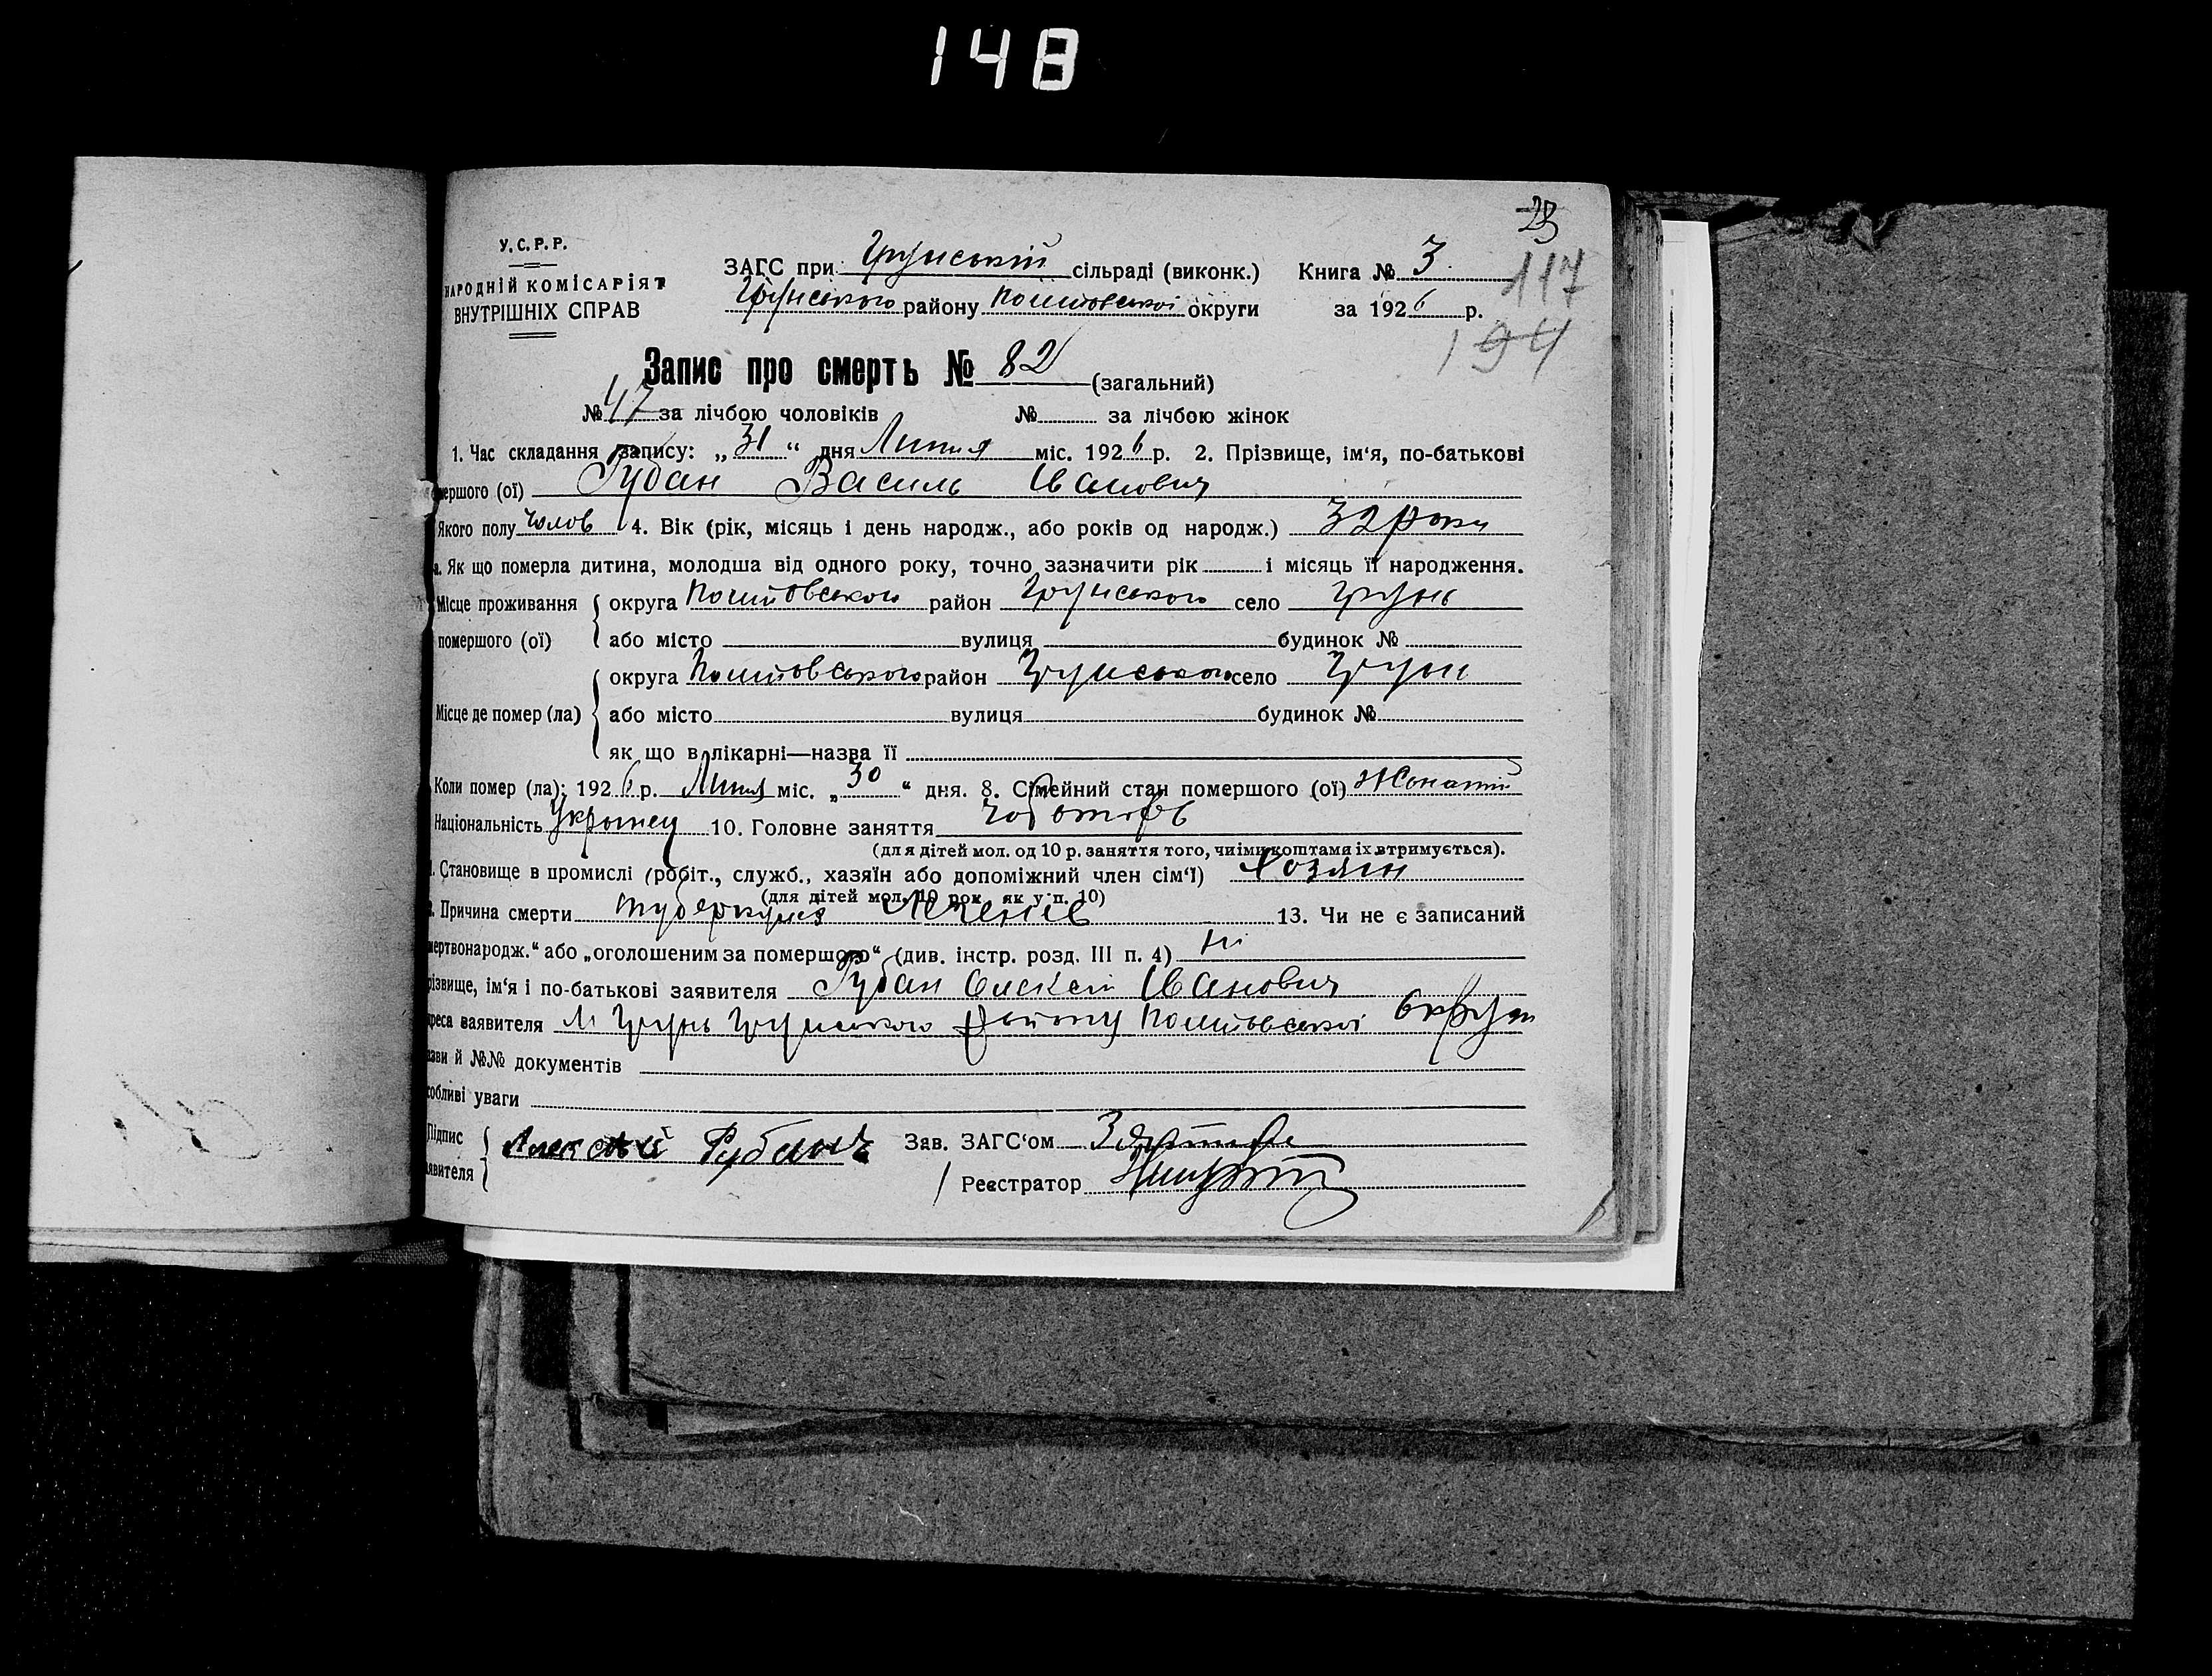 148
23
У.С.Р.Р.
НАРОДНІЙ КОМІСАРІЯТ
ВНУТРІШНІХ СПРАВ
ЗАГС при Грунській сільраді (виконк.) Книга № 3
117
Грунського району Полтовської округи за 1926 р.
194
Запис про смерть № 82 (загальний)
№ 47 за лічбою чоловіків № за лічбою жінок
1. Час складання запису: „31“ дня Липня міс. 1926 р. 2. Прізвище, ім‘я, по-батькові
мершого (ої) Губан Василь Іванович
Якого полу чолов 4. Вік (рік, місяць і день народж., або років од народж.) 32 роки
а. Як що померла дитина, молодша від одного року, точно зазначити рік і місяць її народження.
Місце проживання округа Полтовського район Грунського село Грунь
помершого (ої) або місто вулиця будинок №
округа Полтовського район Грунського село Грун
Місце де помер (ла) або місто вулиця будинок №
як що в лікарні—назва її
Коли помер (ла): 1926 р. Липня міс. „30“ дня. 8. Сімейний стан помершого (ої) Жонатий
Національність Украинец 10. Головне заняття Чоботарь
(для дітей мол. од 10 р. заняття того, чиїми коштами їх втримується).
1. Становище в промислі (робіт., служб., хазяїн або допоміжний член сім‘ї) Хозяин
(для дітей мол. 10 рок. як у п. 10)
2. Причина смерти туберкульз Легенів 13. Чи не є записаний
мертвонародж.“ або „оголошеним за помершого“ (див. інстр. розд. III п. 4) Ні
різвище, ім‘я і по-батькові заявителя Губан Олексій Іванович
дреса заявителя М Грунь Грунського району Полтовської Округи
азви й №№ документів
собливі уваги
Підпис Алексей Губанъ Зав. ЗАГС‘ом
аявителя Реєстратор